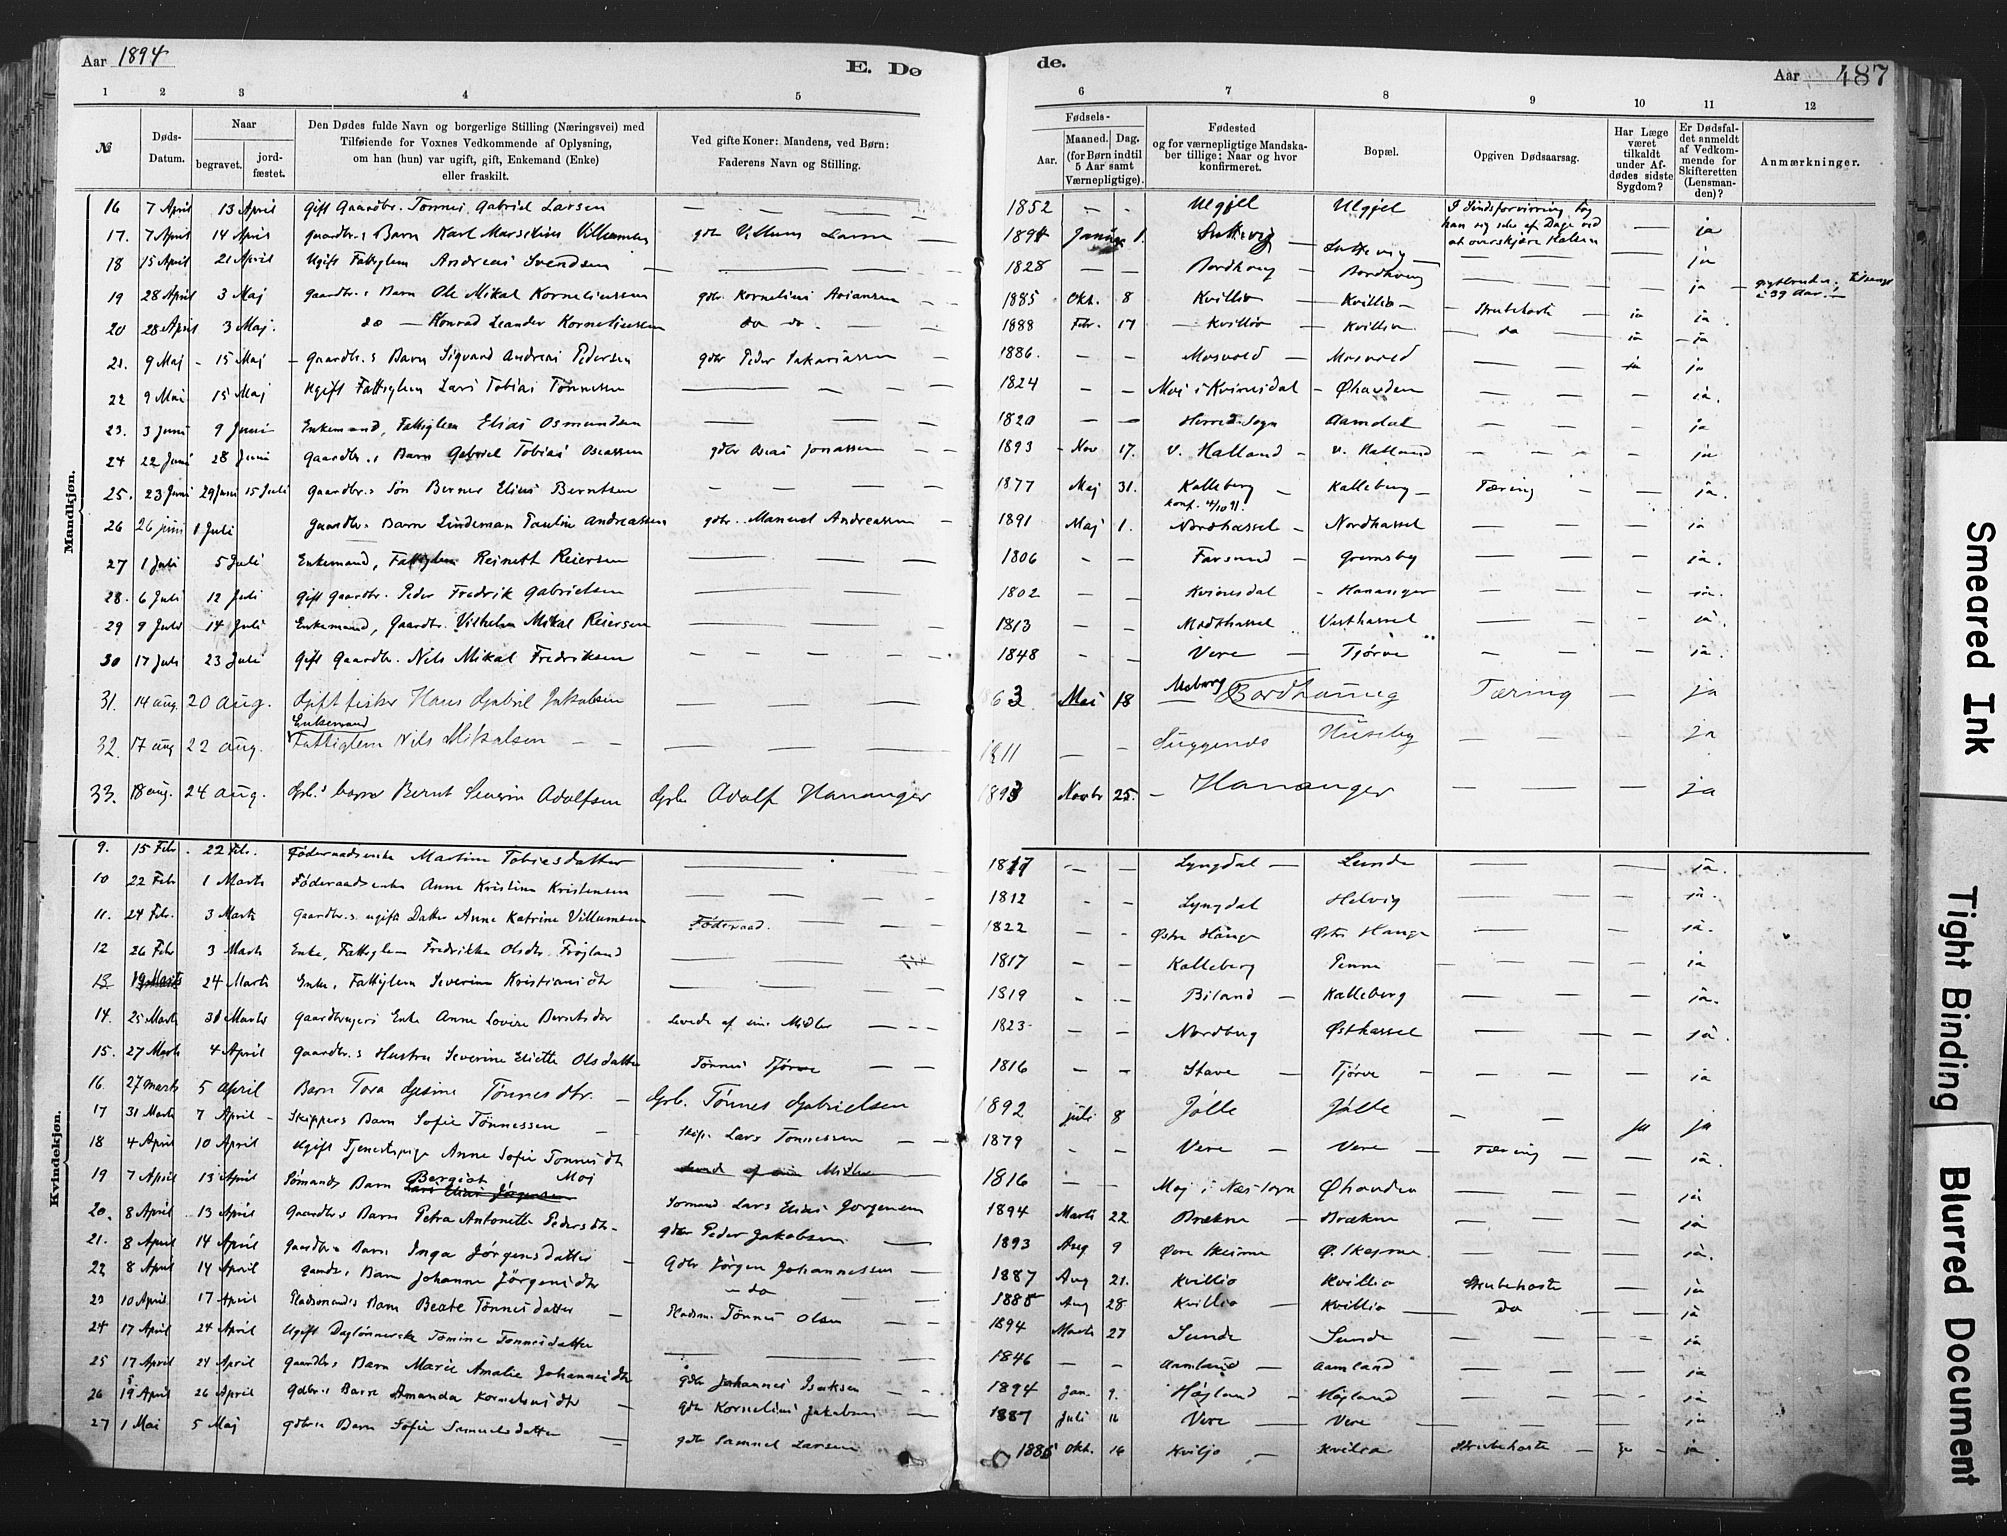 Aar 1894
E. Dø
de.
Aar
487
1 2 3 4 5 6 7 8 9 10 11 12
№
Døds-
Datum.
Naar
begravet.
jord-
fæstet.
Den Dødes fulde Navn og borgerlige Stilling (Næringsvei) med
Tilføiende for Voxnes Vedkommende af Oplysning,
om han (hun) var ugift, gift, Enkemand (Enke)
eller fraskilt.
Ved gifte Koner: Mandens, ved Børn:
Faderens Navn og Stilling.
Fødsels-
Aar.
Maaned. Dag.
(for Børn indtil
5 Aar samt
Værnepligtige).
Fødested
og for værnepligtige Mandska-
ber tillige: Naar og hvor
konfirmeret.
Bopæl.
Opgiven Dødsaarsag.
Har Læge
været
tilkaldt
under Af-
dødes sidste
Sygdom?
Er Dødsfal-
det anmeldt
af Vedkom-
mende for
Skifteretten
(Lensman-
den)?
Anmærkninger.
Mandkjøn.
16 7 April 13 April Gift Gaardbr. Tønnes Gabriel Larsen — — 1852 — — Ulgjel Ulgjel I Sindsforvirring tog han sig af Dage ved at overskjære Halsen — ja
17. 7 April 14 April Gaardbr.s Barn Karl Marselius Villumsen gdbr Villum Larsen — 1894 Januar 1. — ja
18 15 April 21 April Ugift Fattiglem Andreas Svendsen — 1828 — — Bordhaug — Bordhaug — — ja
19 28 April 3 Maj Gaardbr.s Barn Ole Mikal Korneliussen gdbr Kornelius Ariansen — 1885 Okt. 8 Kvillio — Kvillio — Strubehoste — ja ja
20 28 April 3 Maj. do — Konrad Leander Korneliussen do do. — 1888 Febr. 17 — Kvillio — Kvillio — do — ja — ja
21. 9 Maj — 15 Maj — Gaardbr.s Barn Sigvard Andreas Pedersen gdbr Peder Sakariassen — 1886. — — Mosvold — Mosvold — — ja ja
22 9 Mai 15 Maj Ugift Fattiglem Lars Tobias Tønnesen — 1824 — — Moi i Kvinesdal — Øhavden — — ja.
23. 3 Juni 9 Juni Enkemand, Fattiglem Elias Osmundsen — 1820 — — Herred Sogn Aamdal — — ja
24 22 Juni 28 Juni Gaardbr.s Barn Gabriel Tobias Oseassen gdbr Oseas Jonassen — 1893 — Nov 17. V. Halland — V. Halland — — ja
25. 23 Juni 29 Juni 15 Juli Gaardbr.s Søn Berner Elias Berntsen — 1877 Maj 31. Kalleberg — Kalleberg — Tæring — — ja.
konf. 4/10 91.
26 26 juni 1 Juli Gaardbr.s Barn Lindeman Paulin Andreassen gdbr. Manuel Andreassen — 1891 Maj 1. Nordhassel — Nordhassel — — ja
27 1 Juli 5 Juli Enkemand, Fattiglem Reinert Reiersen — 1806 — — Farsund — Grimsby — — ja.
28. 6 Juli 12 Juli Gift Gaardbr. Peder Fredrik Gabrielsen — 1802 — — Kvinesdal — Hananger — — ja.
29 9 Juli 14 Juli Enkemand, Gaardbr. Vilhelm Mikal Reiersen — 1813 — — Midthassel Vesthassel — — ja.
30 17 Juli 23 Juli Gift Gaardbr. Nils Mikal Fredriksen — 1848 — — Vere — Tjørve — — ja.
31. 14 aug. 20 aug. Gift fisker Hans Gabriel Jakobsen — 1863 Mai 18 — Bordhaug Tæring — ja
Enkemand
32. 17 aug 22 aug. Fattiglem Nils Mikalsen — 1811 — — Huseby — — ja
33. 18 aug. 24 aug. Gbr.s barn Bernt Severin Adolfsen Gbr. Adolf Hananger 1893 Novbr 25. — Hananger — — ja
Kvindekjøn.
9. 15 Febr. 22 Febr. Føderaadsenke Martine Tobiesdatter — 1817 — — Lyngdal — Lunde — — ja.
10 22 Febr 1 Marts Føderaadsenke Anne Kristine Kristensen — 1812 — — Lyngdal Helvig — — ja.
11. 24 Febr. 3 Marts Gaardbr.s ugifte Datter Anne Katrine Villumsen Føderaad. — 1822 — — Østre Hauge Østre Hauge — — ja.
12 26 Febr 3 Marts Enke, Fattiglem Fredrikke Olsdtr. Frøjland — 1817 — — Kalleberg Penne — — ja
13 19 Marts 24 Marts Enke, Fattiglem Severine Kristiansdtr — 1819 — — Biland — Kalleberg — — ja.
14. 25 Marts 31 Marts Gaardbrugers Enke Anne Lovise Berntsdtr Levede af sine Midler — 1823 — — Nordberg Østhassel — — ja.
15. 27 Marts 4 April Gaardbr.s Hustru Severine Eliette Olsdatter Tønnes Tjørve — 1816 — — Stave — Tjørve — — ja
16. 27 marts 5 april Barn Tora Gesine Tønnesdtr. — Gbr. Tønnes Gabrielsen 1892 juli 8 Jølle Jølle — — ja ja
17 31 Marts 7 April — Skippers Barn Sofie Tønnessen — Skipr. Lars Tønnessen — 1879 — — Vere — Vere — Tæring — — ja.
18 4 April 10 April Ugift Tjenestepige Anne Sofie Tønnesdtr Moj Levede af sine Midler 1816 — — Moj i Næs Sogn Øhavden — — ja
19 7 April 13 April Sømands Barn Bergiot Lars Elias Jørgensen Sømand Lars Elias Jørgensen 1894 Marts 22 Brækne — Brækne — — ja
20. 8 April 13 April Gaardbr.s Barn Petra Antonette Pedersdtr. gdbr Peder Jakobsen — 1893 Aug 9 Øvre Skeime Ø. Skejme. — — ja.
21. 8 April 14 April Gaardbr.s Barn Inga Jørgensdatter — Gdbr Jørgen Johannessen — 1887 Aug 21. Kvillio Kvillio Strubehoste — ja
22 8 April 14 April Gaardbr.s Barn Johanne Jørgensdtr — do — 1885 Aug 28. Kvillio — Kvillio — Do — ja
23 10 April 17 April Pladsmands Barn Beate Tønnesdatter — Pladsm. Tønnes Olsen — 1894 Marts 27 Sunde Sunde — — ja
24 17 April 24 April Ugift Daglønnerske Tomine Tønnesdatter — 1846 — — Aamland — Aamland — — ja
25 17 April 24 April Gaardbr.s Barn Marie Amalie Johannesdtr gdbr Johannes Isaksen — 1894 Jan. 9. Højland — Højland — — ja
26 19 April 26 April Gdbr.s Barn Amanda Kornelius dtr — gdbr Kornelius Jakobsen — 1887 Juli 16 Vere — Vere — — ja
27 1 Mai 5 Maj gdbrs Barn Sofie Samuelsdatter — gdbr Samuel Larsen 1885 Okt. 16 Kviljo — Kviljo Strubehoste — ja — ja
Smeared Ink
Tight Binding
Blurred Document